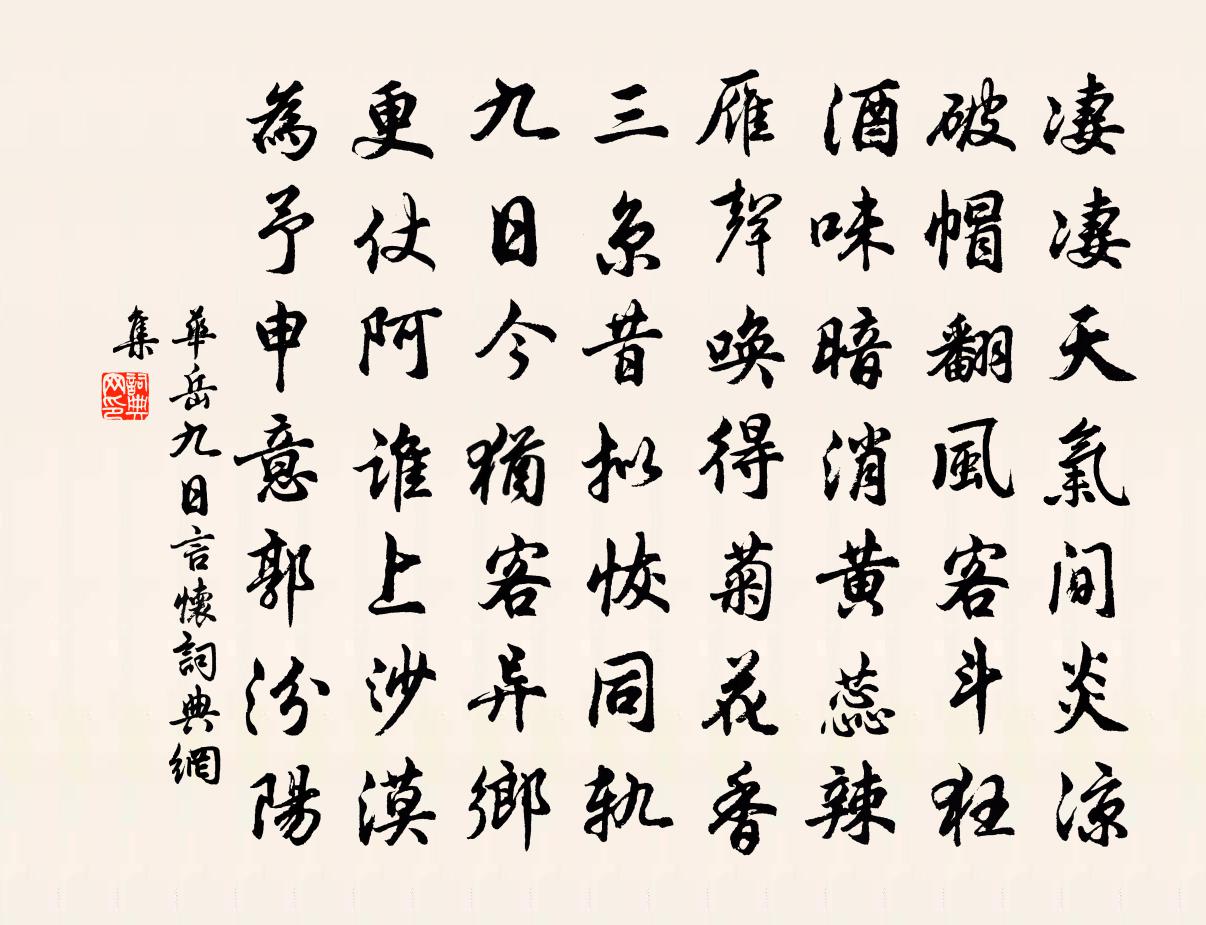 凄凄天氣間炎涼
破帽翻風客斗狂
酒味暗消黄蕊辣
雁聲唤得菊花香
三京昔拟恢同軌
九日今猶客异鄉
更仗阿谁上沙漠
為予申意郭汾陽
華岳九日言懷詞典網
集
詞典网印